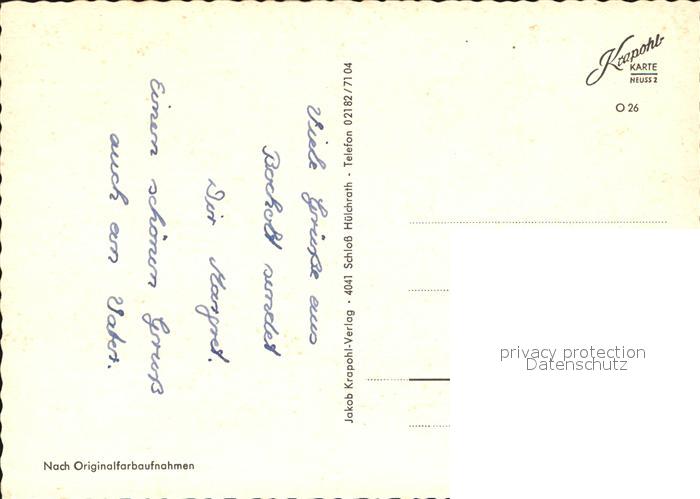 Krapohl-
KARTE
NEUSS 2
O 26
Viele Grüße aus
Bocholt sendet
Dir Margret.
Einen schönen Gruß
auch an Vater.
Jakob Krapohl-Verlag · 4041 Schloß Hülchrath · Telefon 02182/7104
privacy protection
Datenschutz
Nach Originalfarbaufnahmen